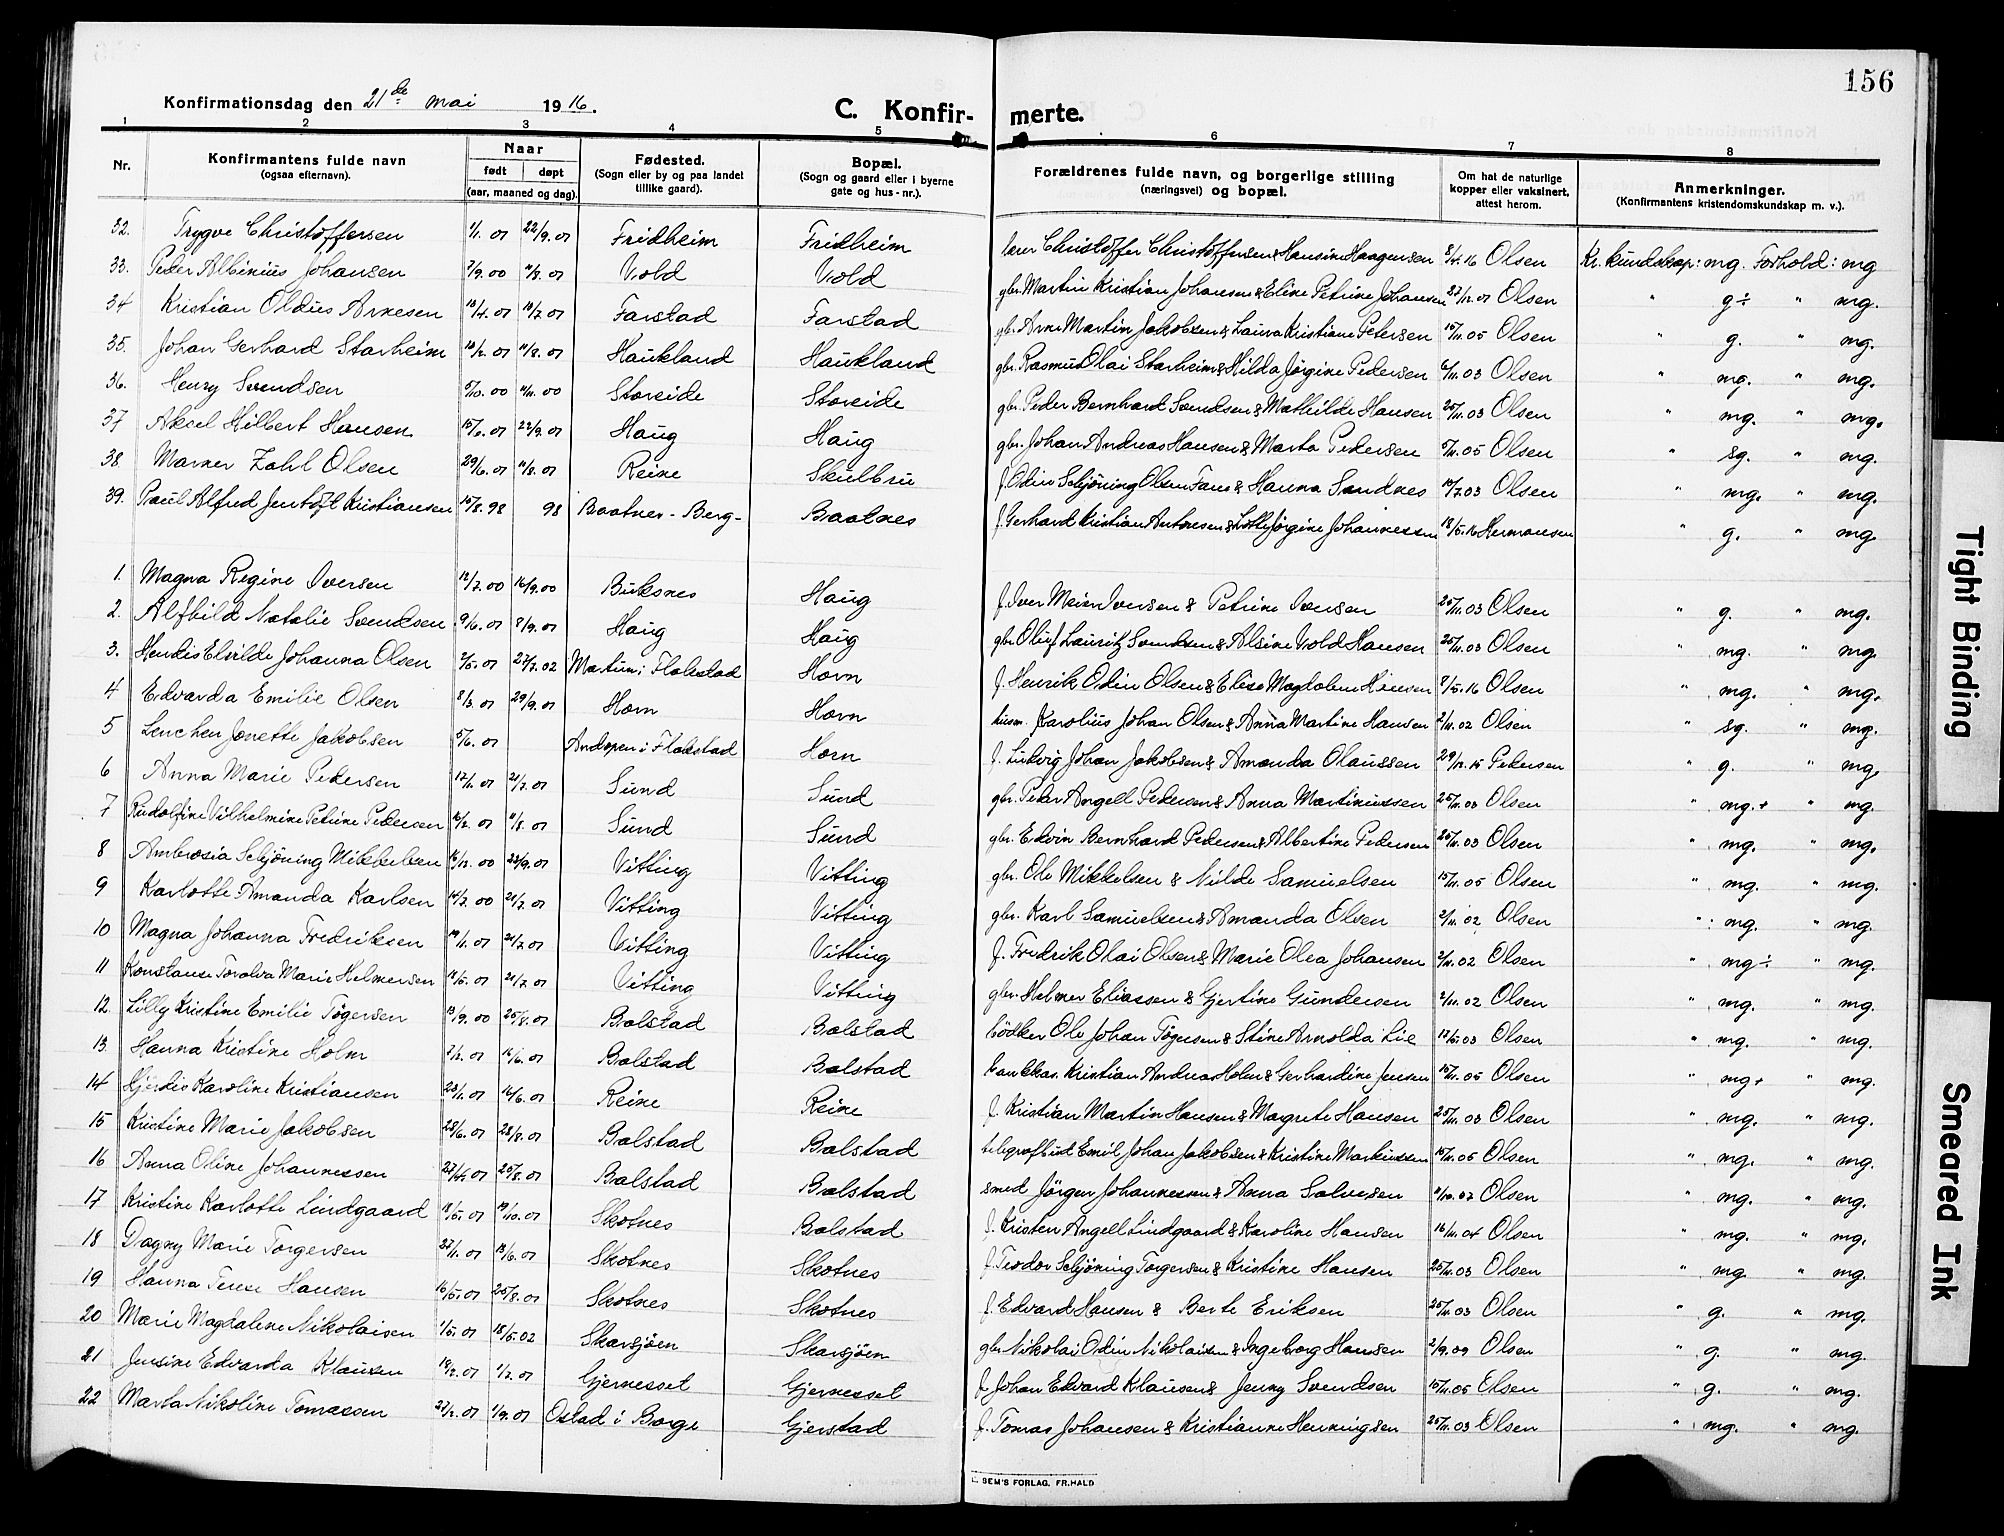 156
Konfirmationsdag den 21de mai 1916.
C. Konfir- merte.
1 2 3 4 5 6 7 8
Nr. Konfirmantens fulde navn (ogsaa efternavn). Naar født døpt (aar, maaned og dag). Fødested. (Sogn eller by og paa landet tillike gaard). Bopæl. (Sogn og gaard eller i byerne gate og hus-nr.). Forældrenes fulde navn, og borgerlige stilling (næringsvei) og bopæl. Om hat de naturlige kopper eller vaksinert, attest herom. Anmerkninger. (Konfirmantens kristendomskundskap m. v.).
32. Trygve Christoffersen 1/1. 01 22/9. 01 Fridheim Fridheim lærer Christoffer Christoffersen & Hansine Haagensen 8/4. 16 Olsen Kr. kundskap: mg. Forhold: mg
33. Peder Albinius Johansen 7/9. 00 11/8. 01 Vold Vold gbr. Martin Kristian Johansen & Eline Petrine Johansen 27/12. 01 Olsen " g÷ " mg.
34 Kristian Oldius Arnesen 13/4. 01 19/7. 01 Farstad Farstad gbr. Arne Martin Jakobsen & Laura Kristiane Petersen 15/11. 05 Olsen " g. " mg.
35. Johan Gerhard Starheim 10/2. 01 11/8. 01 Haukland Haukland gbr. Rasmus Olai Starheim & Hilda Jørgine Pedersen 6/11. 03 Olsen " mg. " mg.
36. Henry Svendsen 5/10. 00 11/11. 00 Storeide Storeide gbr. Peder Bernhard Svendsen & Mathilde Hansen 25/11. 03 Olsen " mg. " mg.
37 Aksel Hilbert Hansen 15/6. 01 22/9. 01 Haug Haug gbr. Johan Andreas Hansen & Marta Pedersen 5/11. 05 Olsen " sg. " mg.
38. Marner Zahl Olsen 29/6. 01 11/8. 01 Reine Skulbru f. Odin Schjöning Olsen & Hanna Sandnes 10/7. 03 Olsen " mg. " mg.
39. Paul Alfred Jentoft Kristiansen 15/8. 98 98 Baatnes - Berg - Baatnes f. Gerhard Kristian Antonsen & Lotte Jørgine Johannessen 18/5. 16 Hermansen " g. " mg
1. Magna Regine Iversen 12/7. 00 16/9. 00 Buksnes Haug f. Iver Meier Iversen & Petrine Iversen 25/11. 03 Olsen " g. " mg.
2. Alfhild Natalie Svendsen 9/6. 01 8/9. 01 Haug Haug gbr. Oluf Lauritz Svendsen & Alsine Vold Hansen 25/11. 03 Olsen " mg. " mg.
3. Hendis Elvilde Johanna Olsen 7/5. 01 27/7. 02 Mortun i Flakstad Horn f. Henrik Odin Olsen & Elise Magdalene Hansen 8/5. 16 Olsen " mg. " mg.
4 Edvarda Emilie Olsen 8/3. 01 29/9. 01 Horn Horn husm. Karolius Johan Olsen & Anna Martine Hansen 2/11. 02 Olsen " sg. " mg.
5 Lenchen Jonette Jakobsen 5/6. 01 Andopen i Flakstad Horn f. Ludvig Johan Jakobsen & Amanda Olaussen 29/12. 15 Pedersen " g. " mg.
6 Anna Marie Pedersen 12/1. 01 21/7. 01 Sund Sund gbr. Peder Angell Pedersen & Anna Martinussen 25/11. 03 Olsen " mg.+ " mg.
7 Rudolfine Vilhelmine Petrine Pedersen 10/2. 01 11/8. 01 Sund Sund gbr. Edvin Bernhard Pedersen & Albertine Pedersen 25/11. 03 Olsen " mg. " mg.
8 Ambrosia Schjöning Mikkelsen 16/12. 00 22/9. 01 Vitting Vitting gbr. Ole Mikkelsen & Nilde Samuelsen 15/11. 05 Olsen " mg. " mg.
9 Karlotte Amanda Karlsen 14/7. 00 21/7. 01 Vitting Vitting gbr. Karl Samuelsen & Amanda Olsen 2/11. 02 Olsen " mg. " mg.
10 Magna Johanna Fredriksen 19/1. 01 21/7. 01 Vitting Vitting f. Fredrik Olai Olsen & Marie Olea Johansen 2/11. 02 Olsen " mg÷ " mg.
11 Konstanse Toralva Marie Helmersen 18/5. 01 21/7. 01 Vitting Vitting gbr. Helmer Eliassen & Gjertine Gundersen 2/11. 02 Olsen " mg. " mg.
12. Lilly Kristine Emilie Tögersen 13/9. 00 25/8. 01 Balstad Balstad bödker Ole Johan Tögersen & Stine Arnolda Lie 17/5. 03 Olsen " mg. " mg.
13. Hanna Kristine Holm 7/2. 01 16/6. 01 Balstad Balstad bankkas. Kristian Andreas Holm & Gerhardine Jensen 15/11. 05 Olsen " mg+ " mg.
14 Hjördis Karoline Kristiansen 23/1. 01 16/6. 01 Reine Reine f. Kristian Martin Hansen & Magrete Hansen 25/11. 03 Olsen " mg. " mg.
15 Kristine Marie Jakobsen 28/6. 01 28/8. 01 Balstad Balstad telegrafbud Emil Johan Jakobsen & Kristine Markussen 15/11. 05 Olsen " mg. " mg.
16 Anna Oline Johannessen 27/4. 01 25/8. 01 Balstad Balstad smed Jörgen Johannessen & Anna Salvesen 11/10. 07 Olsen " mg. " mg.
17 Kristine Karlotte Lindgaard 18/5. 01 19/10. 01 Skotnes Balstad f. Kristen Angell Lindgaard & Karoline Hansen 16/11. 04 Olsen " mg. " mg.
18 Dagny Marie Torgersen 27/1. 01 13/6. 01 Skotnes Skotnes f. Teodor Schjöning Torgersen & Kristine Hansen 25/11. 03 Olsen " mg " mg.
19 Hanna Terese Hansen 16/5. 01 25/8. 01 Skotnes Skotnes f. Edvard Hansen & Berte Eriksen 25/11. 03 Olsen " g. " mg.
20 Marie Magdalene Nikolaisen 1/5. 01 18/5. 02 Skarsjöen Skarsjöen gbr Nikolai Odin Nikolaisen & Ingeborg Hansen 2/9. 09 Olsen " g. " mg.
21 Jensine Edvarda Klausen 18/2. 01 1/7. 01 Gjernesset Gjernesset f. Johan Edvard Klausen & Jenny Svendsen 15/11. 05 Olsen " g. " mg.
22 Marta Nikoline Tomassen 27/2. 01 1/9. 01 Ostad i Borge Gjerstad f. Tomas Johansen & Kristianne Henningsen 25/11. 03 Olsen " mg. " mg.
SEM'S FORLAG, FR. HALD
Tight Binding
Smeared Ink